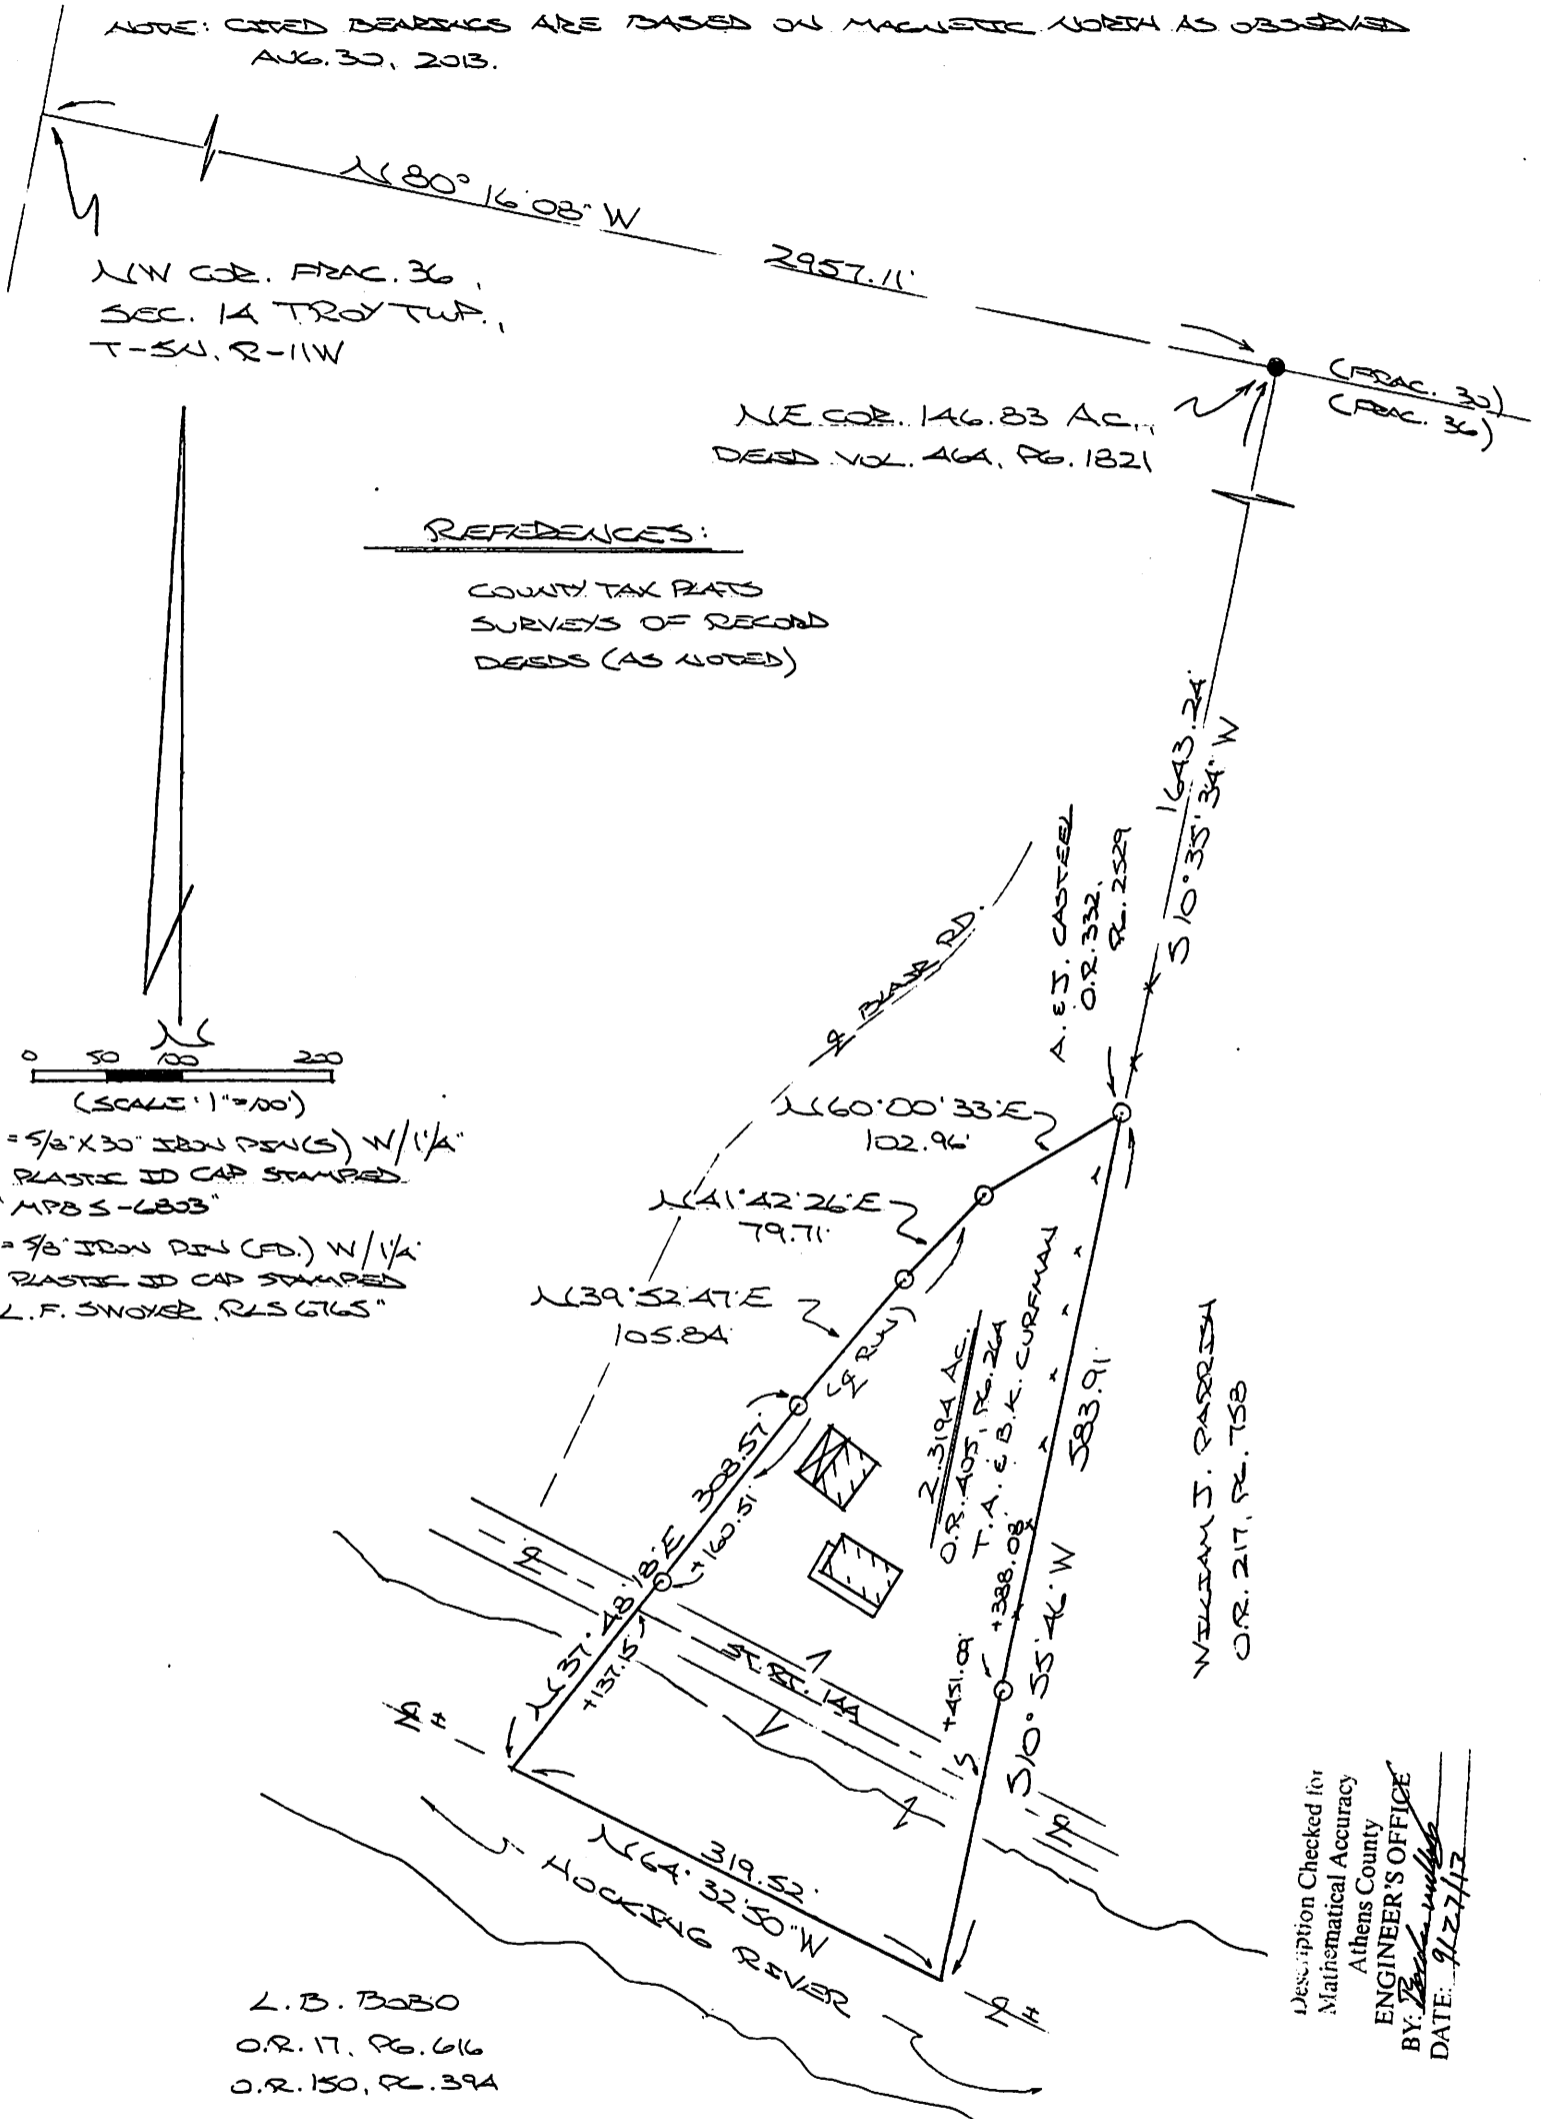 NOTE: CITED BEARINGS ARE BASED ON MAGNETIC NORTH AS OBSERVED
AUG. 30, 2013.
N 80° 16' 08" W
2957.11'
NW COR. FRAC. 36,
SEC. 14 TROY TWP.,
T-5N, R-11W
(FRAC. 30)
(FRAC. 36)
NE COR. 146.83 AC.,
DEED VOL. 464, PG. 1821
REFERENCES:
COUNTY TAX PLATS
SURVEYS OF RECORD
DEEDS (AS NOTED)
1643.24'
S 10° 35' 34" W
A. & J. CASTEEL
O.R. 332,
PG. 2529
℄ BLAIR RD.
N
0 50 100 200
(SCALE: 1"=100')
= 5/8" X 30" IRON PIN(S) W/ 1 1/4"
PLASTIC ID CAP STAMPED
"MPB S-6803"
= 5/8" IRON PIN (FD.) W/ 1 1/4"
PLASTIC ID CAP STAMPED
L.F. SWOYER RLS 6765"
N 60° 00' 33" E
102.96'
N 41° 42' 26" E
79.71'
N 39° 52' 47" E
105.84'
(℄ RUN)
2.3194 AC.
O.R. 405, PG. 264
T. A. & B. K. CURFMAN
583.91'
S 10° 55' 46" W
+388.08'
+451.09'
WILLIAM J. PARRISH
O.R. 217, PG. 758
308.57'
N 37° 48' 18" E
+160.51'
+137.15'
℄
ST. RT. 144
℄
℄ ±
319.52'
N 64° 32' 50" W
HOCKING RIVER
℄ ±
L. B. BOBO
O.R. 17, PG. 616
O.R. 150, PG. 394
Description Checked for
Mathematical Accuracy
Athens County
ENGINEER'S OFFICE
BY:
DATE: 9/27/13